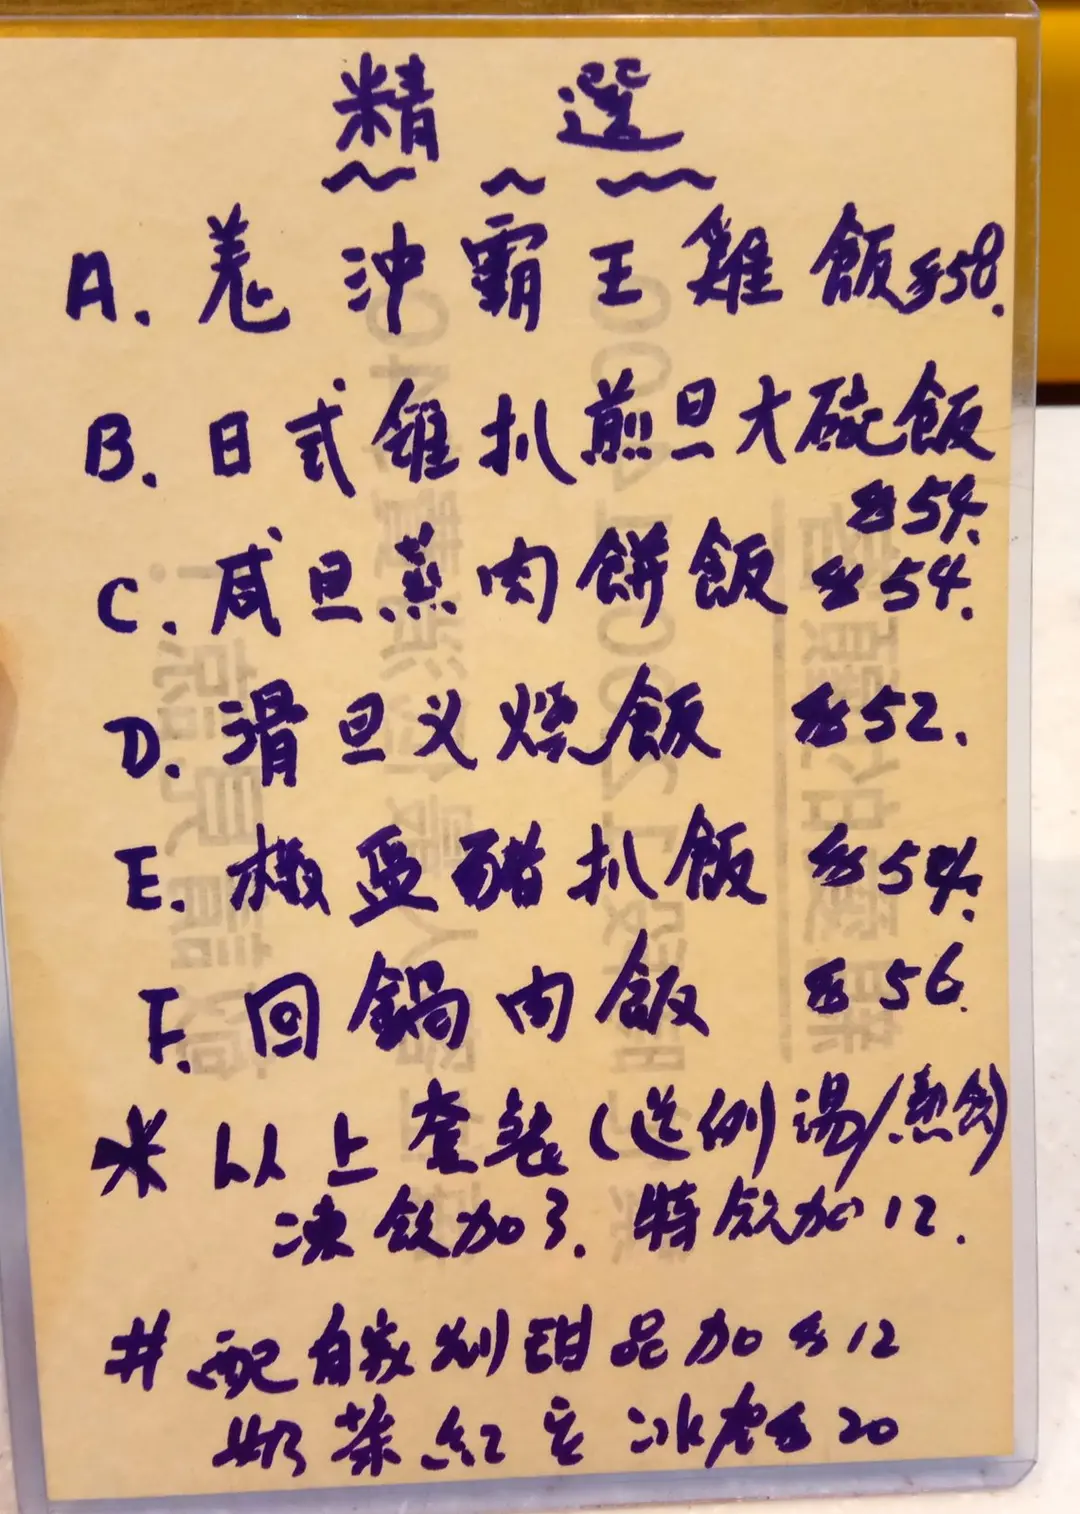 精選
A. 羌冲霸王雞飯 $58.
B. 日式雞扒煎旦大碗飯
$54.
C. 咸旦蒸肉餅飯 $54.
D. 滑旦义燒飯 $52.
E. 椒盐豬扒飯 $54.
F. 回鍋肉飯 $56.
* 以上套装(送例湯/热飲)
凍飲加3. 特飲加12.
# 配自家制甜品加$12
奶茶紅豆冰 $20